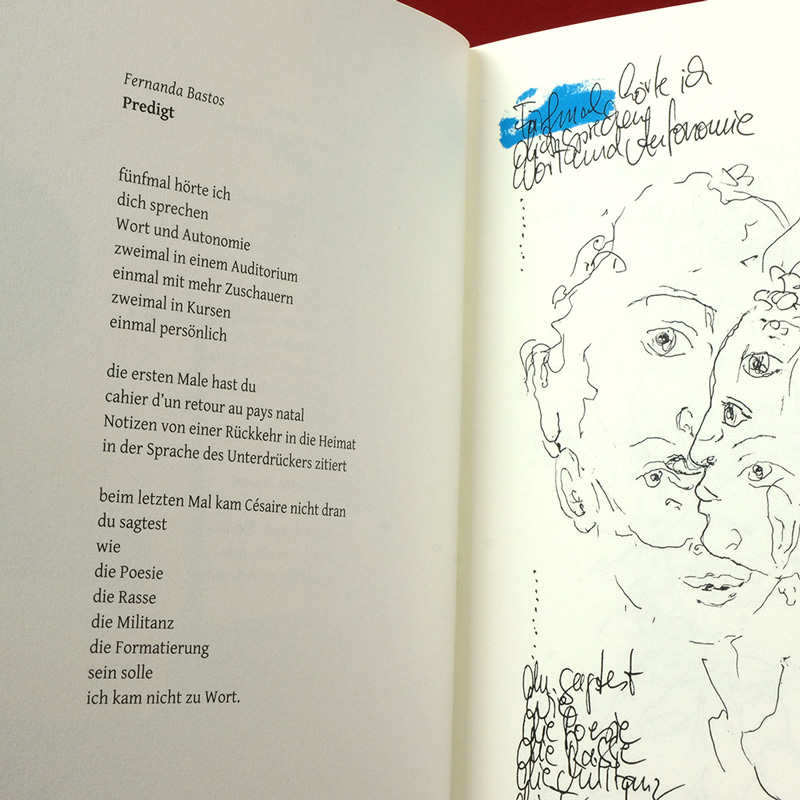 Fernanda Bastos
Predigt
fünfmal hörte ich
dich sprechen
Wort und Autonomie
zweimal in einem Auditorium
einmal mit mehr Zuschauern
zweimal in Kursen
einmal persönlich
die ersten Male hast du
cahier d’un retour au pays natal
Notizen von einer Rückkehr in die Heimat
in der Sprache des Unterdrückers zitiert
beim letzten Mal kam Césaire nicht dran
du sagtest
wie
die Poesie
die Rasse
die Militanz
die Formatierung
sein solle
ich kam nicht zu Wort.
Fünfmal hörte ich
dich sprechen
Wort und Autonomie
du sagtest
wie
die Poesie
die Rasse
die Militanz